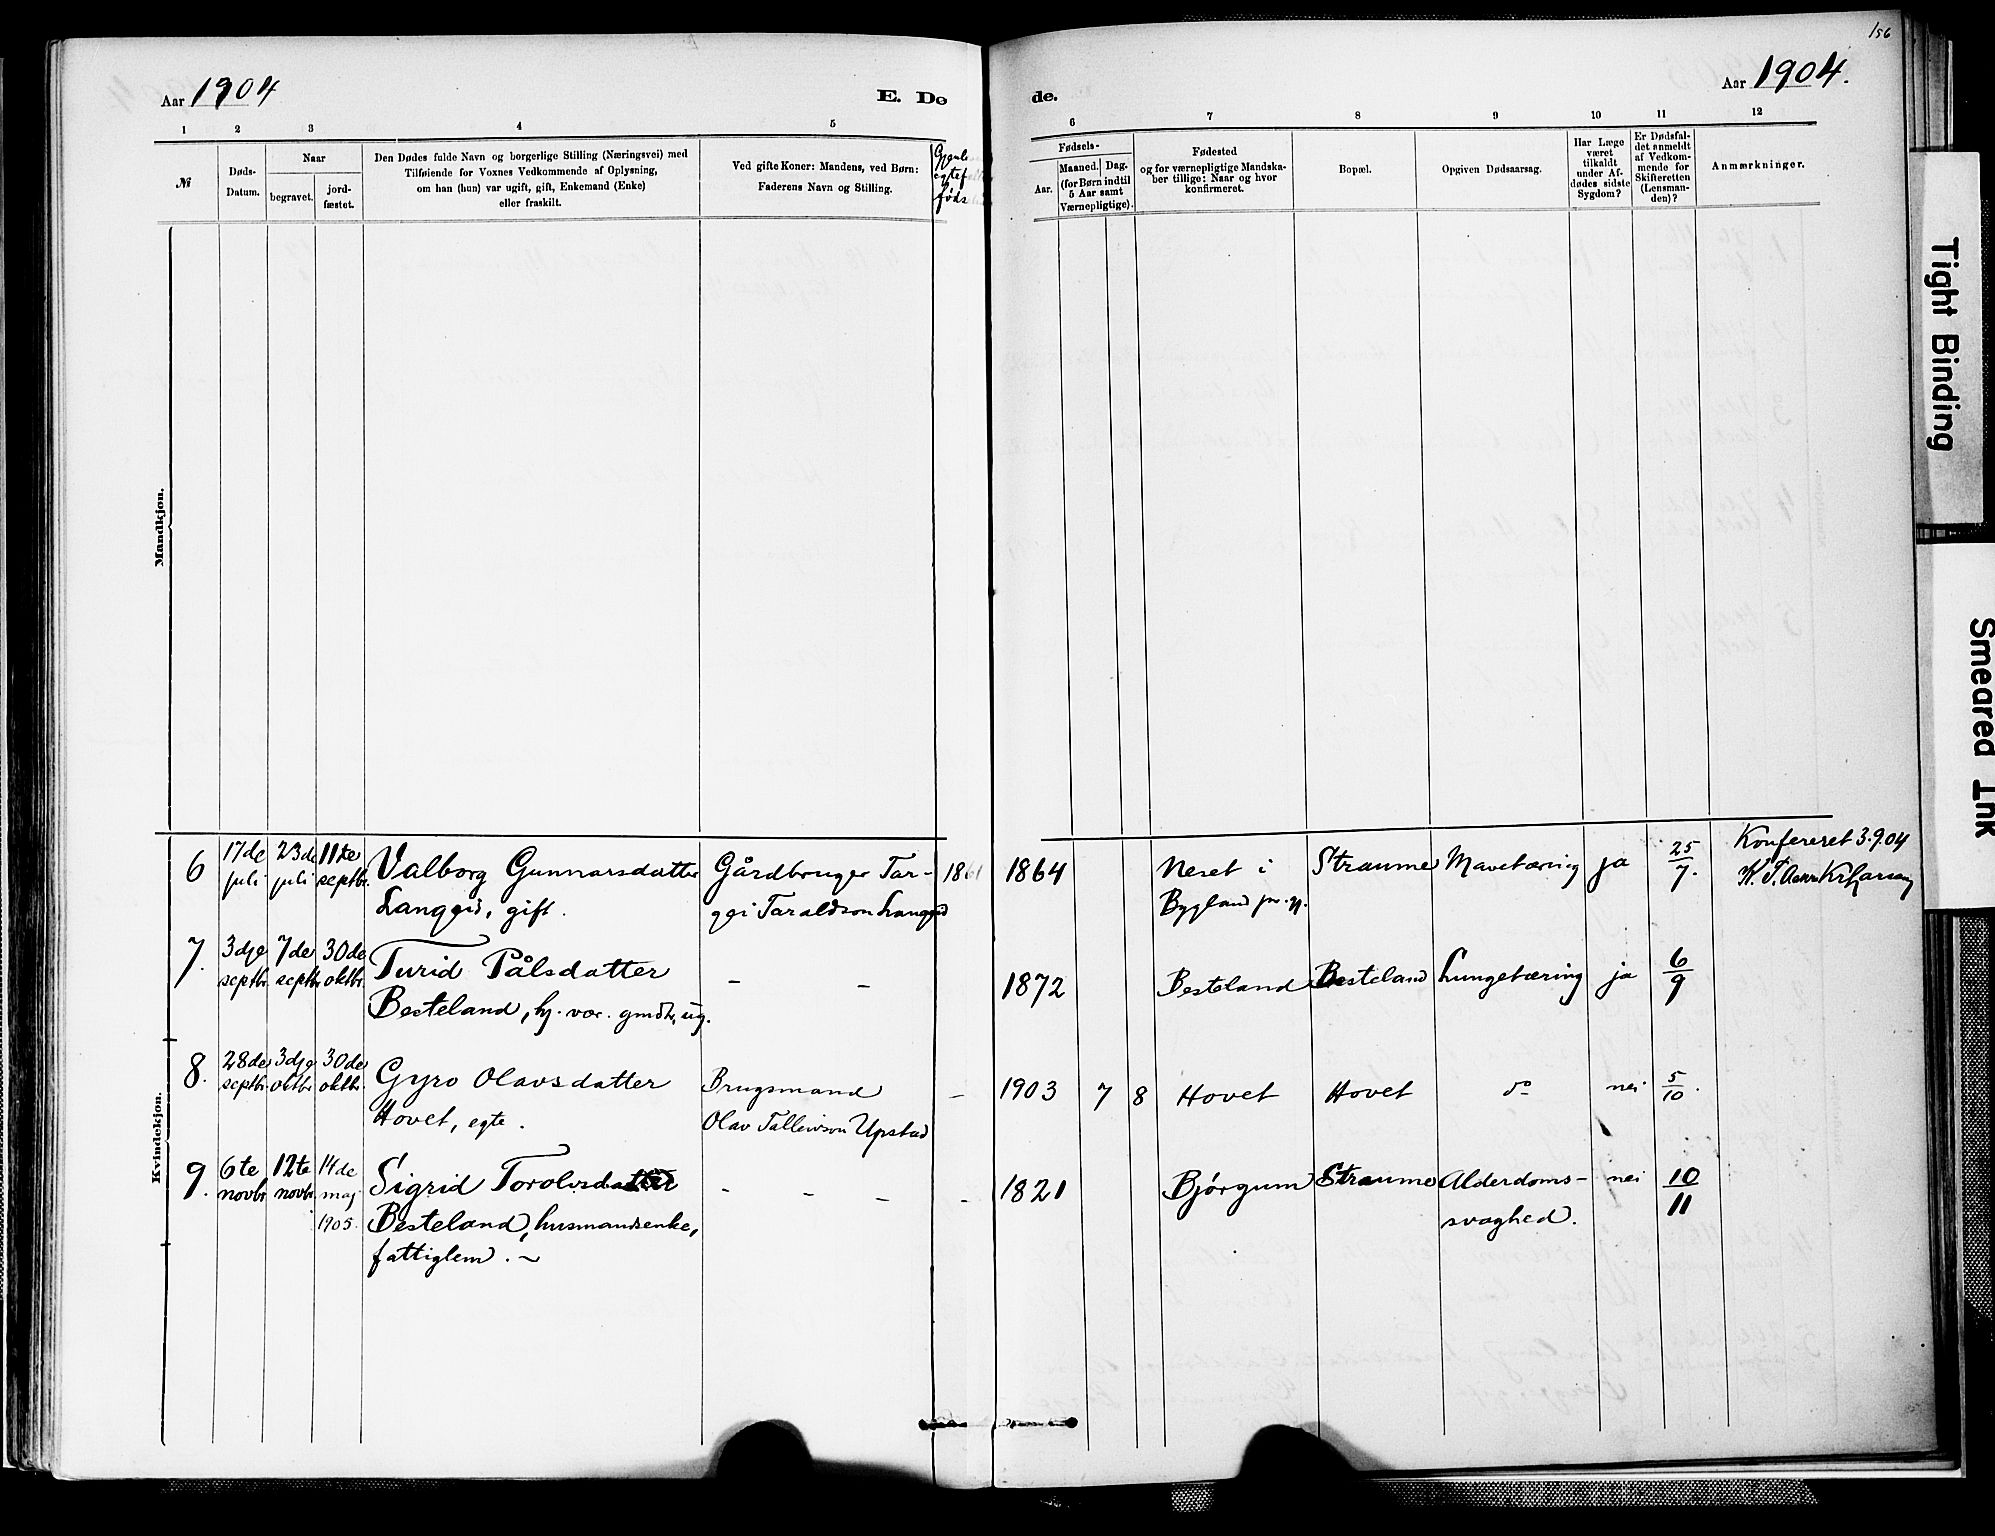 156
Aar 1904
E. Dø
de.
Aar 1904.
1 2 3 4 5
6 7 8 9 10 11 12
№
Døds-
Datum.
Naar
begravet.
jord-
fæstet.
Den Dødes fulde Navn og borgerlige Stilling (Næringsvei) med
Tilføiende for Voxnes Vedkommende af Oplysning,
om han (hun) var ugift, gift, Enkemand (Enke)
eller fraskilt.
Ved gifte Koner: Mandens, ved Børn:
Faderens Navn og Stilling.
Gjenl
egtef
føds
Fødsels-
Aar.
Maaned. Dag.
(for Børn indtil
5 Aar samt
Værnepligtige).
Fødested
og for værnepligtige Mandska-
ber tillige: Naar og hvor
konfirmeret.
Bopæl.
Opgiven Dødsaarsag.
Har Læge
været
tilkaldt
under Af-
dødes sidste
Sygdom?
Er Dødsfal-
det anmeldt
af Vedkom-
mende for
Skifteretten
(Lensman-
den)?
Anmærkninger.
Mandkjøn.
Kvindekjøn.
6 17de 23de 11te Valborg Gunnarsdatter Gårdbruger Tar- 1861 1864 Neset i Straume Mavetæring ja 25/7. Konfereret 3.9.04
juli juli septbr. Langeid, gift. ggi Taraldson Langeid Bygland
7. 3dje 7de 30de Turid Pålsdatter – – 1872 Besteland Besteland Lungetæring ja 6/9
septbr. septbr oktbr. Besteland, hj. vær. gmdtr, ug.
8. 28de 3dje 30de Gyro Olavsdatter Brugsmand – 1903 7 8 Hovet Hovet do nei 5/10.
septbr. oktbr. oktbr. Hovet, egte. Olav Talleivson Upstad
9. 6te 12te 14de Sigrid Torolvsdatter – – – – 1821 Bjørgum Straume Alderdoms- nei 10/11
novbr novbr. maj Besteland, husmandsenke, svaghed.
1905. fattiglem. –
Tight Binding
Smeared Ink